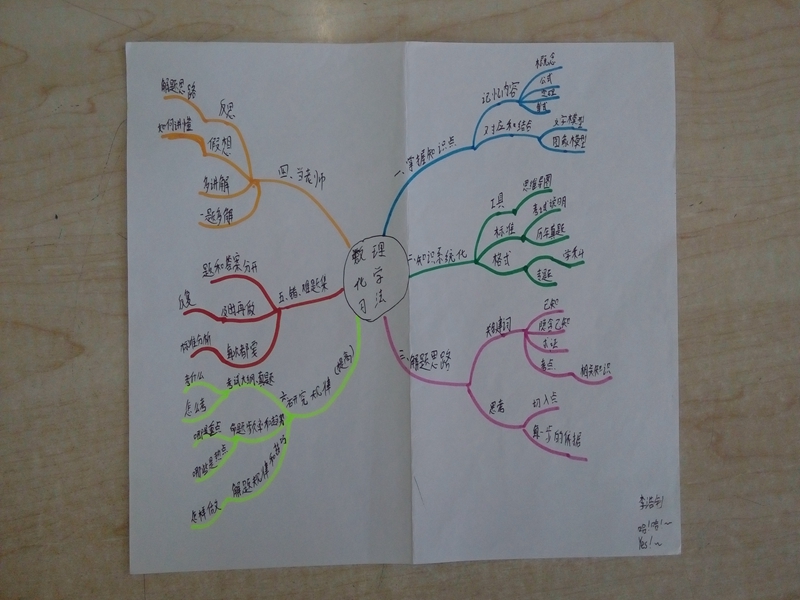 数理
化学
习法
一.掌握知识点
记忆内容
概念
公式
定理
对应和结合
文字模型
图象模型
二.知识系统化
工具
思维导图
标准
考试说明
历年真题
格式
学科
专题
三.解题思路
关键词
已知
隐含已知
求证
考点
相关知识
思考
切入点
每一步的依据
四.当老师
反思
解题思路
假想
如何讲懂
多讲解
一题多解
五.错.难题集
题和答案分开
及时再做
反复
每次都要
标准分析
六.研究规律
(提高)
考试大纲.真题
考什么
怎么考
命题方式和趋势
哪些重点
哪些是热点
解题规律和技巧
怎样价文
哈!哈!~
Yes!~